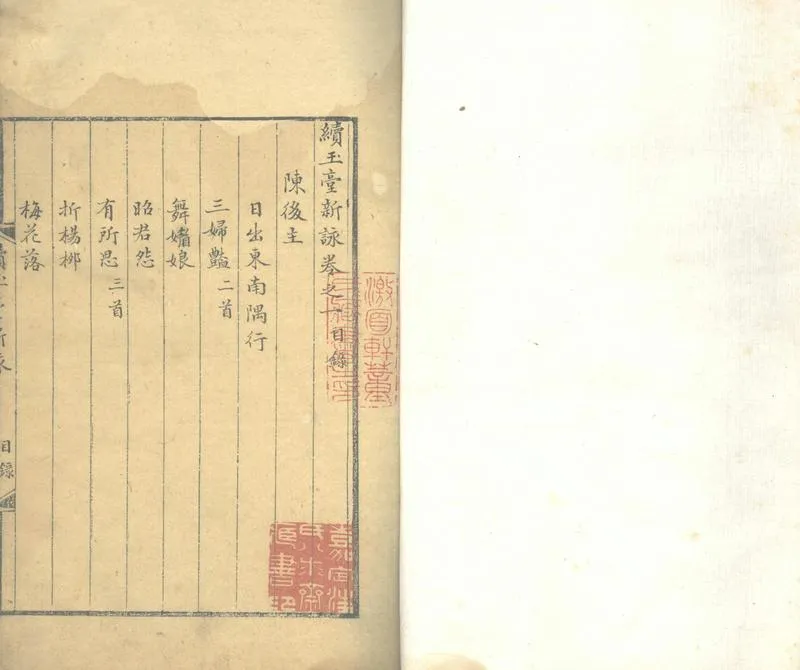 續玉臺新詠卷之一目錄
陳後主
日出東南隅行
三婦豔二首
舞媚娘
昭君怨
有所思三首
折楊柳
梅花落
目錄